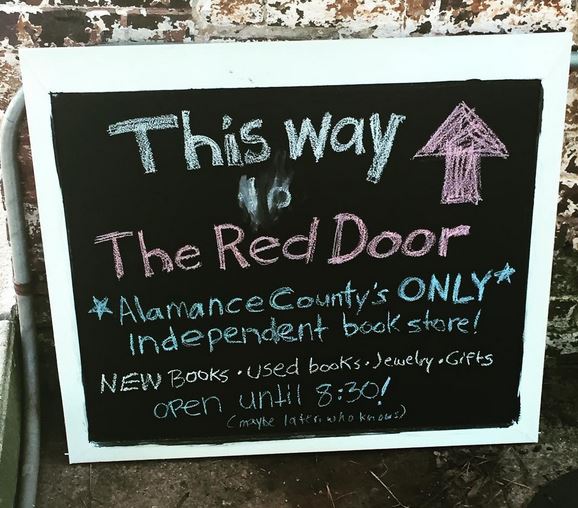 This way
to
The Red Door
*Alamance County's ONLY*
Independent book store!
NEW Books • used books • Jewelry • Gifts
open until 8:30!
(maybe later, who knows)